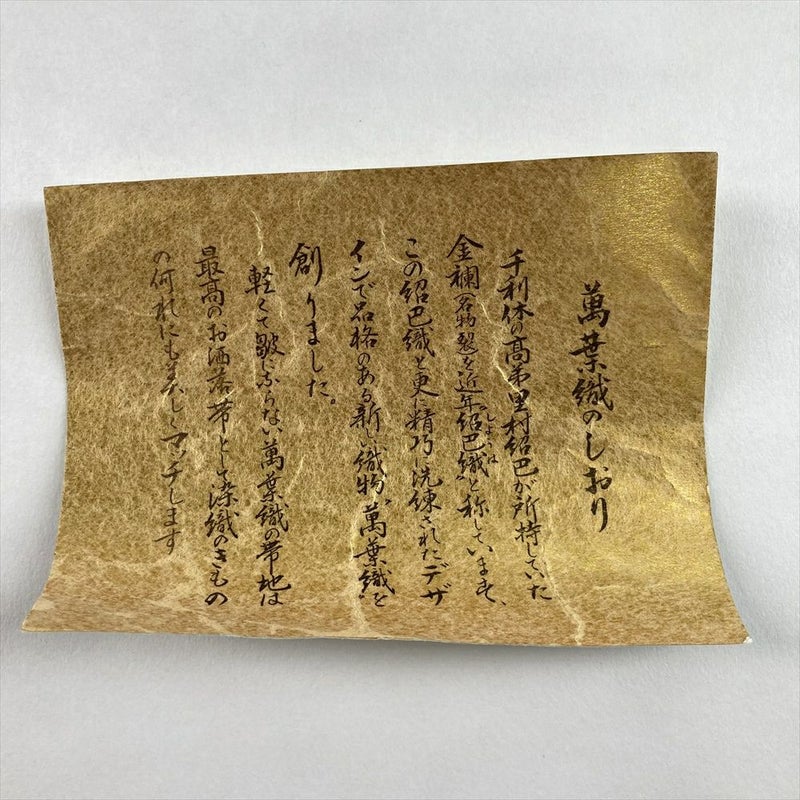 萬葉織のしおり
千利休の高弟里村紹巴が所持していた
金襴(名物裂)を近年“紹巴織”と称しています、
しょうは
この紹巴織を更に精巧に洗練されたデザ
インで品格のある新しい織物“萬葉織”を
創りました。
軽くて皺にならない萬葉織の帯地は
最高のお洒落帯として染織のきもの
の何れにも美しくマッチします